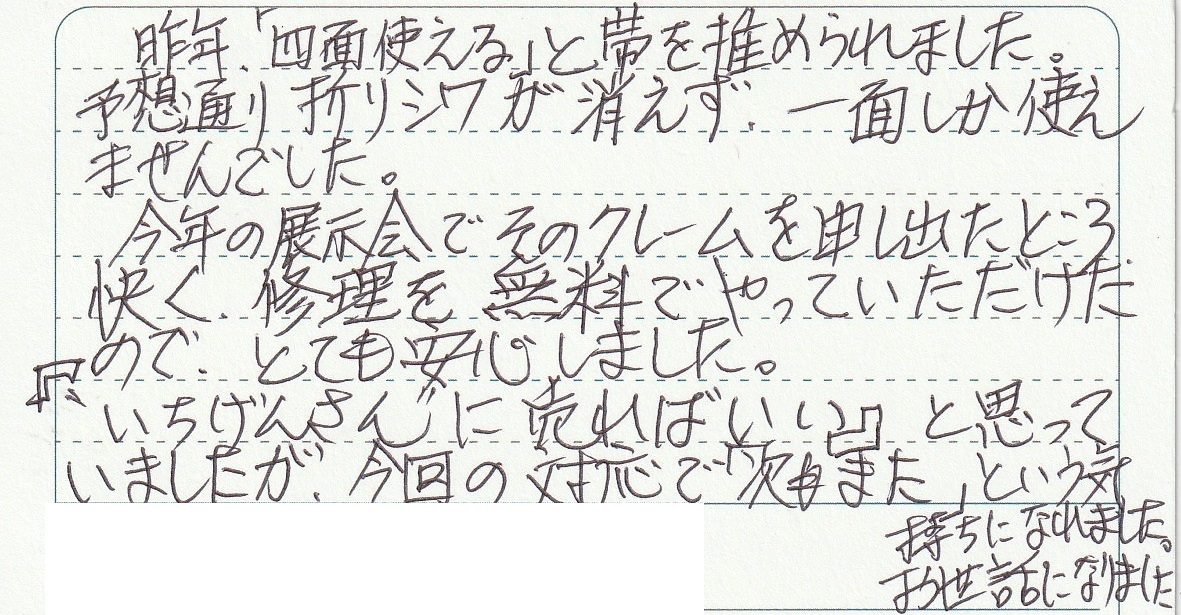 昨年、「四面使える」と帯を推められました。
予想通り折りシワが消えず、一面しか使え
ませんでした。
今年の展示会でそのクレームを申し出たところ
快く、修理を無料でやっていただけた
ので、とても安心しました。
『"いちげんさん"に売ればいい』と思って
いましたが、今回の対応で「次もまた」という気
持ちになれました。
お世話になりました